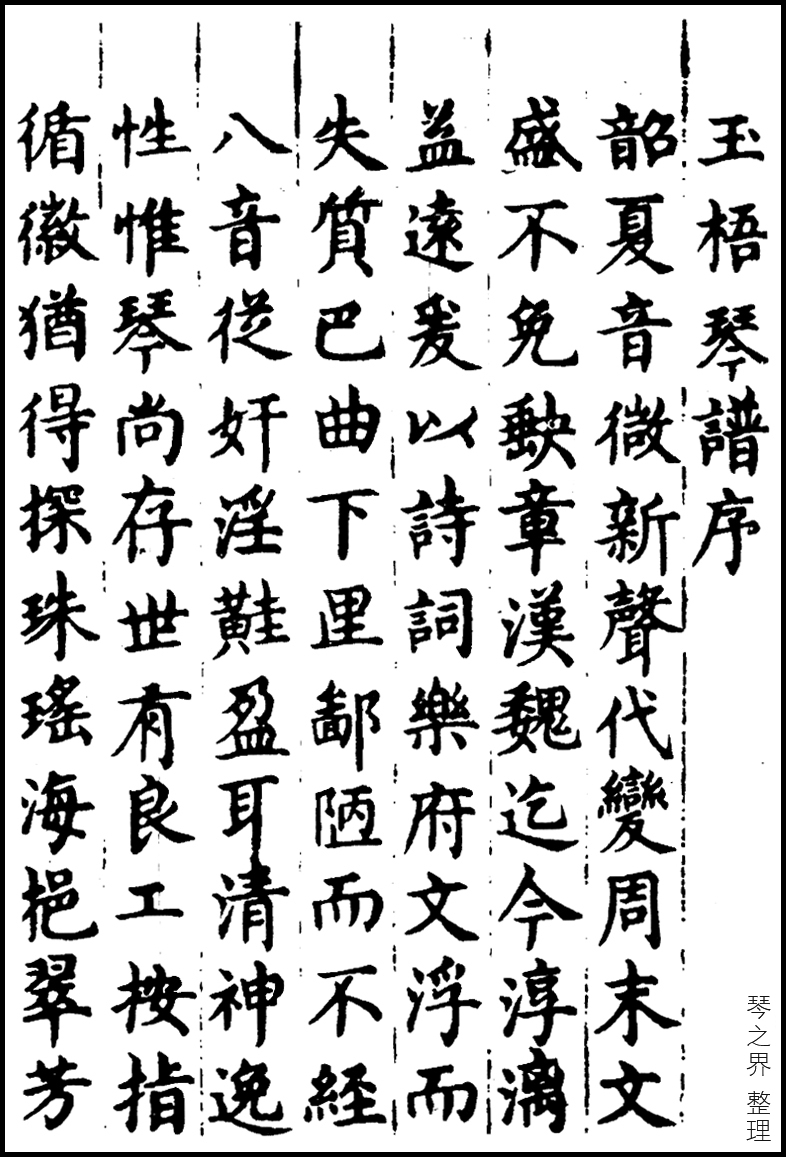 玉梧琴譜序
韶夏音微新聲代變周末文
盛不免斁章漢魏迄今淳漓
益遠爰以詩詞樂府文浮而
失質巴曲下里鄙陋而不経
八音従奸淫鞋盈耳清神逸
性惟琴尚存世有良工按指
循徽猶得探珠瑤海挹翠芳
琴之界 整理